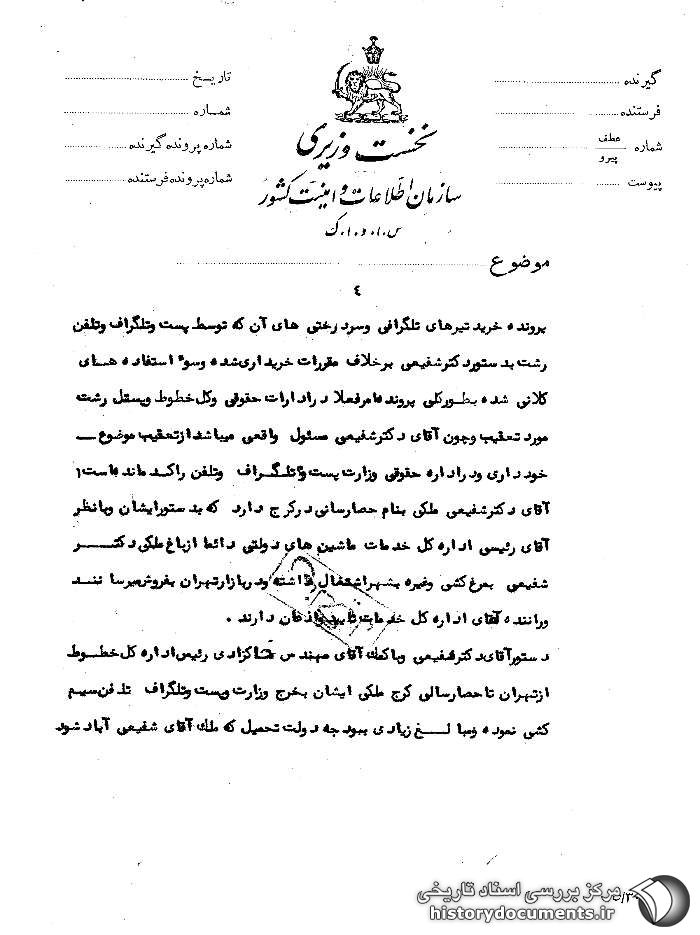 گیرنده
فرستنده
شماره عطف
پیرو
پیوست
نخست وزیری
سازمان اطلاعات و امنیت کشور
س.ا.و.ا.ک
تاریخ
شماره
شماره پرونده گیرنده
شماره پرونده فرستنده
موضوع
٤
پرونده خرید تیرهای تلگرافی وسرد رختی های آن که توسط پست وتلگراف وتلفن
رشت بدستور دکتر شفیعی برخلاف مقررات خریداری شده وسوء استفاده های
کلانی شده بطورکلی پرونده امر فعلا در ادارات حقوقی وکل خطوط وپستل رشت
مورد تعقیب وچون آقای دکتر شفیعی مسئول واقعی میباشد از تعقیب موضوع
خود داری ودر اداره حقوقی وزارت پست وتلگراف وتلفن راکد مانده است
آقای دکتر شفیعی ملکی بنام حصار سانی در کرج دارد که بدستور ایشان وبانظر
آقای رئیسی اداره کل خدمات ماشین های دولتی دائما از باغ ملکی دکتر
شفیعی بمرغ کشی وغیره بشهر اشتغال داشته ودر بازار تهران بفروش میرسانند
وراننده آقای اداره کل خدمات دارند .
دستور آقای دکتر شفیعی وباکمک آقای مهندس رئیس اداره کل خطوط
از تهران تا حصار سالی کرج ملکی ایشان بخرج وزارت وپست وتلگراف تلفن سیم
کشی نموده ومبالغ زیادی ببودجه دولت تحمیل که ملک آقای شفیعی آباد شود
مرکز بررسی اسناد تاریخی
historydocuments.ir